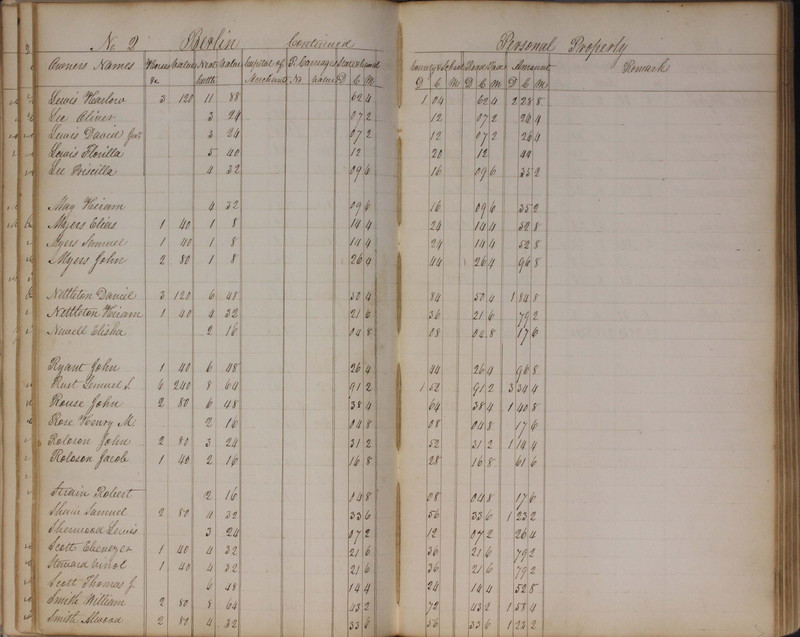 No 2 Berlin Continued Personal Property
Owners Names Horses Value Neat Value Capital of P. Carriages State & Canal County & School Road Tax Amount Remarks
&c Cattle Merchants No Value D C M D C M D C M D C M
Lewis Harlow 3 120 11 88 62 4 1 04 62 4 2 28 8
Lee Oliver 3 24 07 2 12 07 2 26 4
Lewis David 3 24 07 2 12 07 2 26 4
Lewis Florilla 5 40 12 20 12 44
Lee Priscilla 4 32 09 6 16 09 6 35 2
May Hiram 4 32 09 6 16 09 6 35 2
Myers Elias 1 40 1 8 14 4 24 14 4 52 8
Myers Samuel 1 40 1 8 14 4 24 14 4 52 8
Myers John 2 80 1 8 26 4 44 26 4 96 8
Nettleton Daniel 3 120 6 48 50 4 84 50 4 1 84 8
Nettleton Hiram 1 40 4 32 21 6 36 21 6 79 2
Newell Elisha 2 16 04 8 08 04 8 17 6
Ryant John 1 40 6 48 26 4 44 26 4 96 8
Rust Lemuel S. 6 240 8 64 91 2 1 52 91 2 3 34 4
Rouse John 2 80 6 48 38 4 64 38 4 1 40 8
Rose Henry M. 2 16 04 8 08 04 8 17 6
Roloson John 2 80 3 24 31 2 52 31 2 1 14 4
Roloson Jacob 1 40 2 16 16 8 28 16 8 61 6
Strain Robert 2 16 04 8 08 04 8 17 6
Samuel 2 80 4 32 33 6 56 33 6 1 23 2
Sherwood Lewis 3 24 07 2 12 07 2 26 4
Scott Ebenezer 1 40 4 32 21 6 36 21 6 79 2
Steward 1 40 4 32 21 6 36 21 6 79 2
Scott Thomas J. 6 48 14 4 24 14 4 52 8
Smith William 2 80 8 64 43 2 72 43 2 1 58 4
Smith 2 80 4 32 33 6 56 33 6 1 23 2